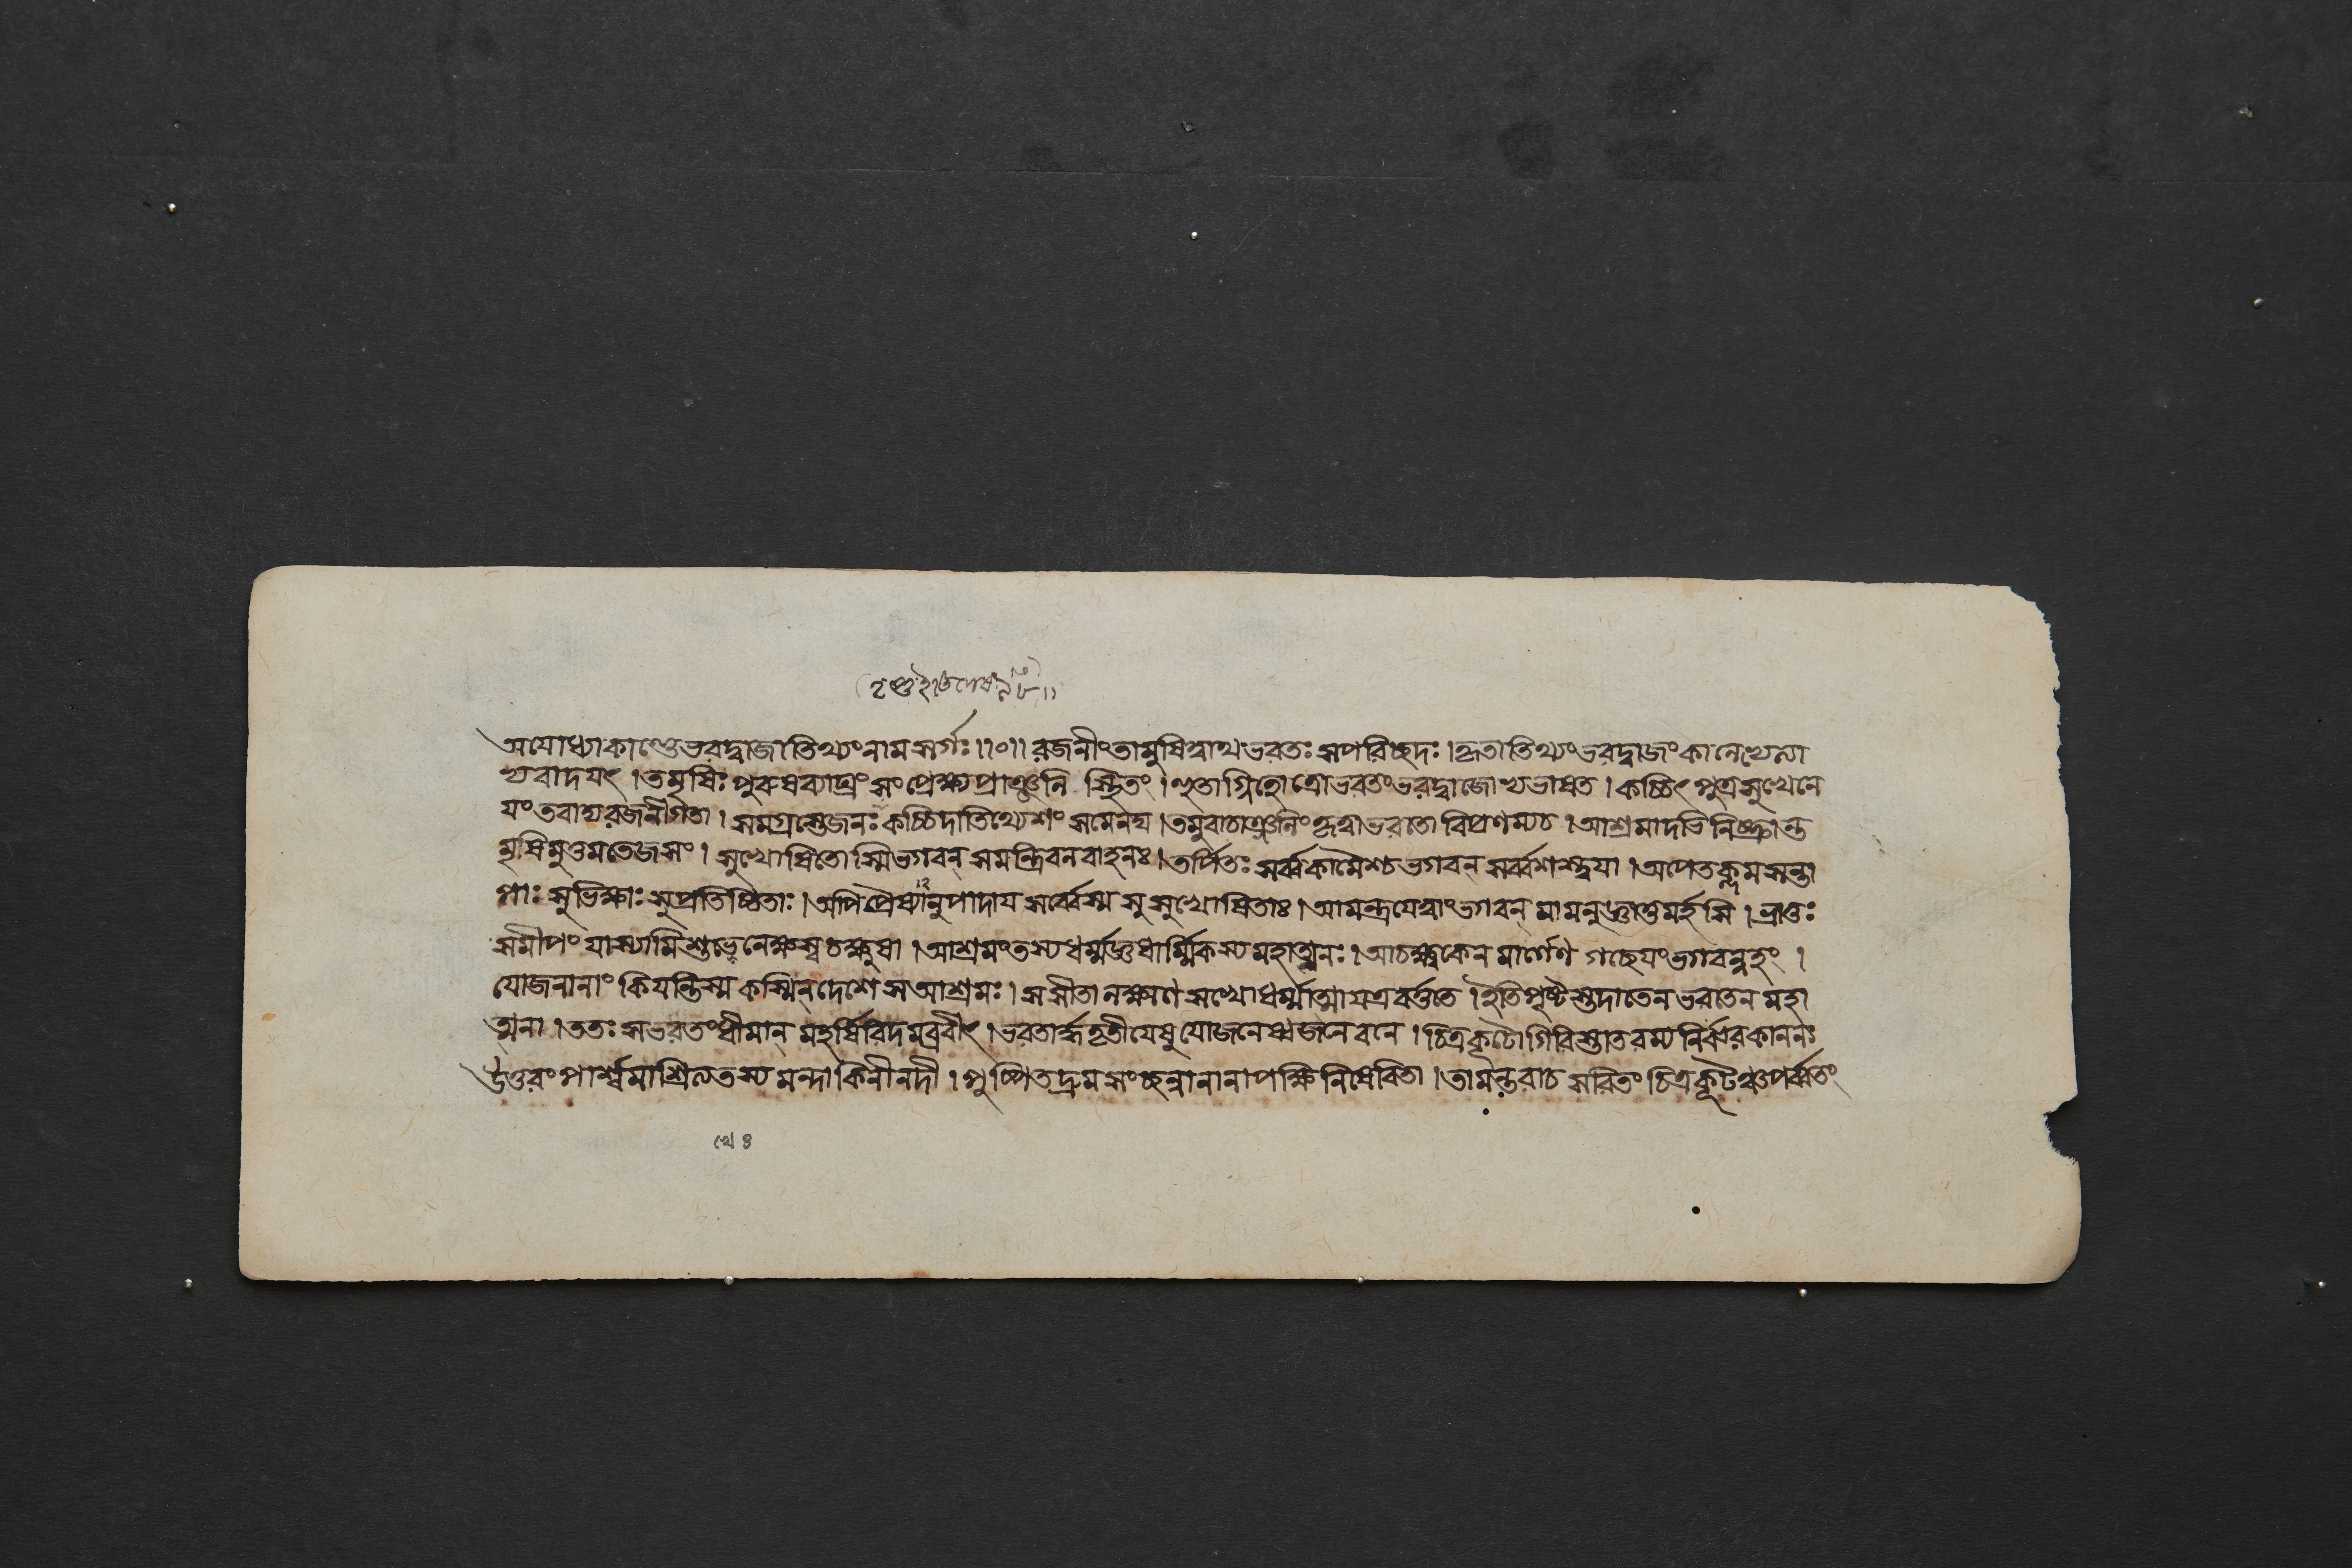 অযোধ্যাকাণ্ডেভরদ্বাজাতিথ্যংনামসর্গঃ॥০॥ রজনীংতামুষিত্বাথভরতঃ সপরিচ্ছদঃ। কৃতাতিথ্যংভরদ্বাজংকালেথৈলা
থবাদয়ৎ। তমৃষিঃ পুরুষব্যাঘ্রং সংপ্রেক্ষ্যপ্রাঞ্জলি স্থিতং। হুতাগ্নিহোত্রোভরতংভরদ্বাজোথভাষত। কচ্চিৎ পুত্রসুখেনে
যংতবাদ্যরজনীগতা। সমগ্রস্তেজনঃ কচ্চিদাতিথ্যেশং সমেনঘ। তমুবাচাঞ্জলিংকৃত্বাভরতোবিপ্রণম্যচ। আশ্রমাদভিনিষ্ক্রান্ত
মৃষিমুত্তমতেজসং। সুখোষিতোস্মিভগবন্ সমন্ত্রিবলবাহনঃ। তর্পিতঃ সর্ব্বকামৈশ্চভগবন্ সর্ব্বশস্ত্বয়া। অপেতক্লমসন্তা
পাঃ সুভিক্ষাঃ সুপ্রতিষ্ঠিতাঃ। অপিপ্রৈষ্যানুপাদায সর্ব্বেস্ম সুসুখোষিতাঃ। আমন্ত্রযেত্বাংভগবন্ মামনুজ্ঞাতুমর্হসি। ভ্রাতুঃ
সমীপং যাস্যামিশ্তভেনেক্ষস্বচক্ষুষা। আশ্রমংতস্যধর্ম্মজ্ঞধার্ম্মিকস্যমহাত্মনঃ। আচক্ষ্বকেন মার্গেণ গচ্ছেযংভগবন্নহং।
যোজনানাং কিযন্তিস্ম কস্মিন্দেশে সআশ্রমঃ। সসীতালক্ষ্মণসখোধর্ম্মাত্মাযত্রবর্ত্ততে। ইতিপৃষ্টস্তদাতেনভরতেনমহা
ত্মনা। ততঃ সভরতংধীমান্ মহর্ষিরিদমব্রবীৎ। ভরতার্দ্ধতৃতীযেষুযোজনেষ্বজনেবনে। চিত্রকূটোগিরিস্তাতরম্যনির্ঝরকাননঃ
উত্তরংপার্শ্বমাশ্রিত্যতস্যমন্দাকিনীনদী। পুষ্পিতদ্রুমসংচ্ছন্নানানাপক্ষিনিষেবিতা। তামন্তরাচসরিতংচিত্রকূটঞ্চপর্ব্বতং